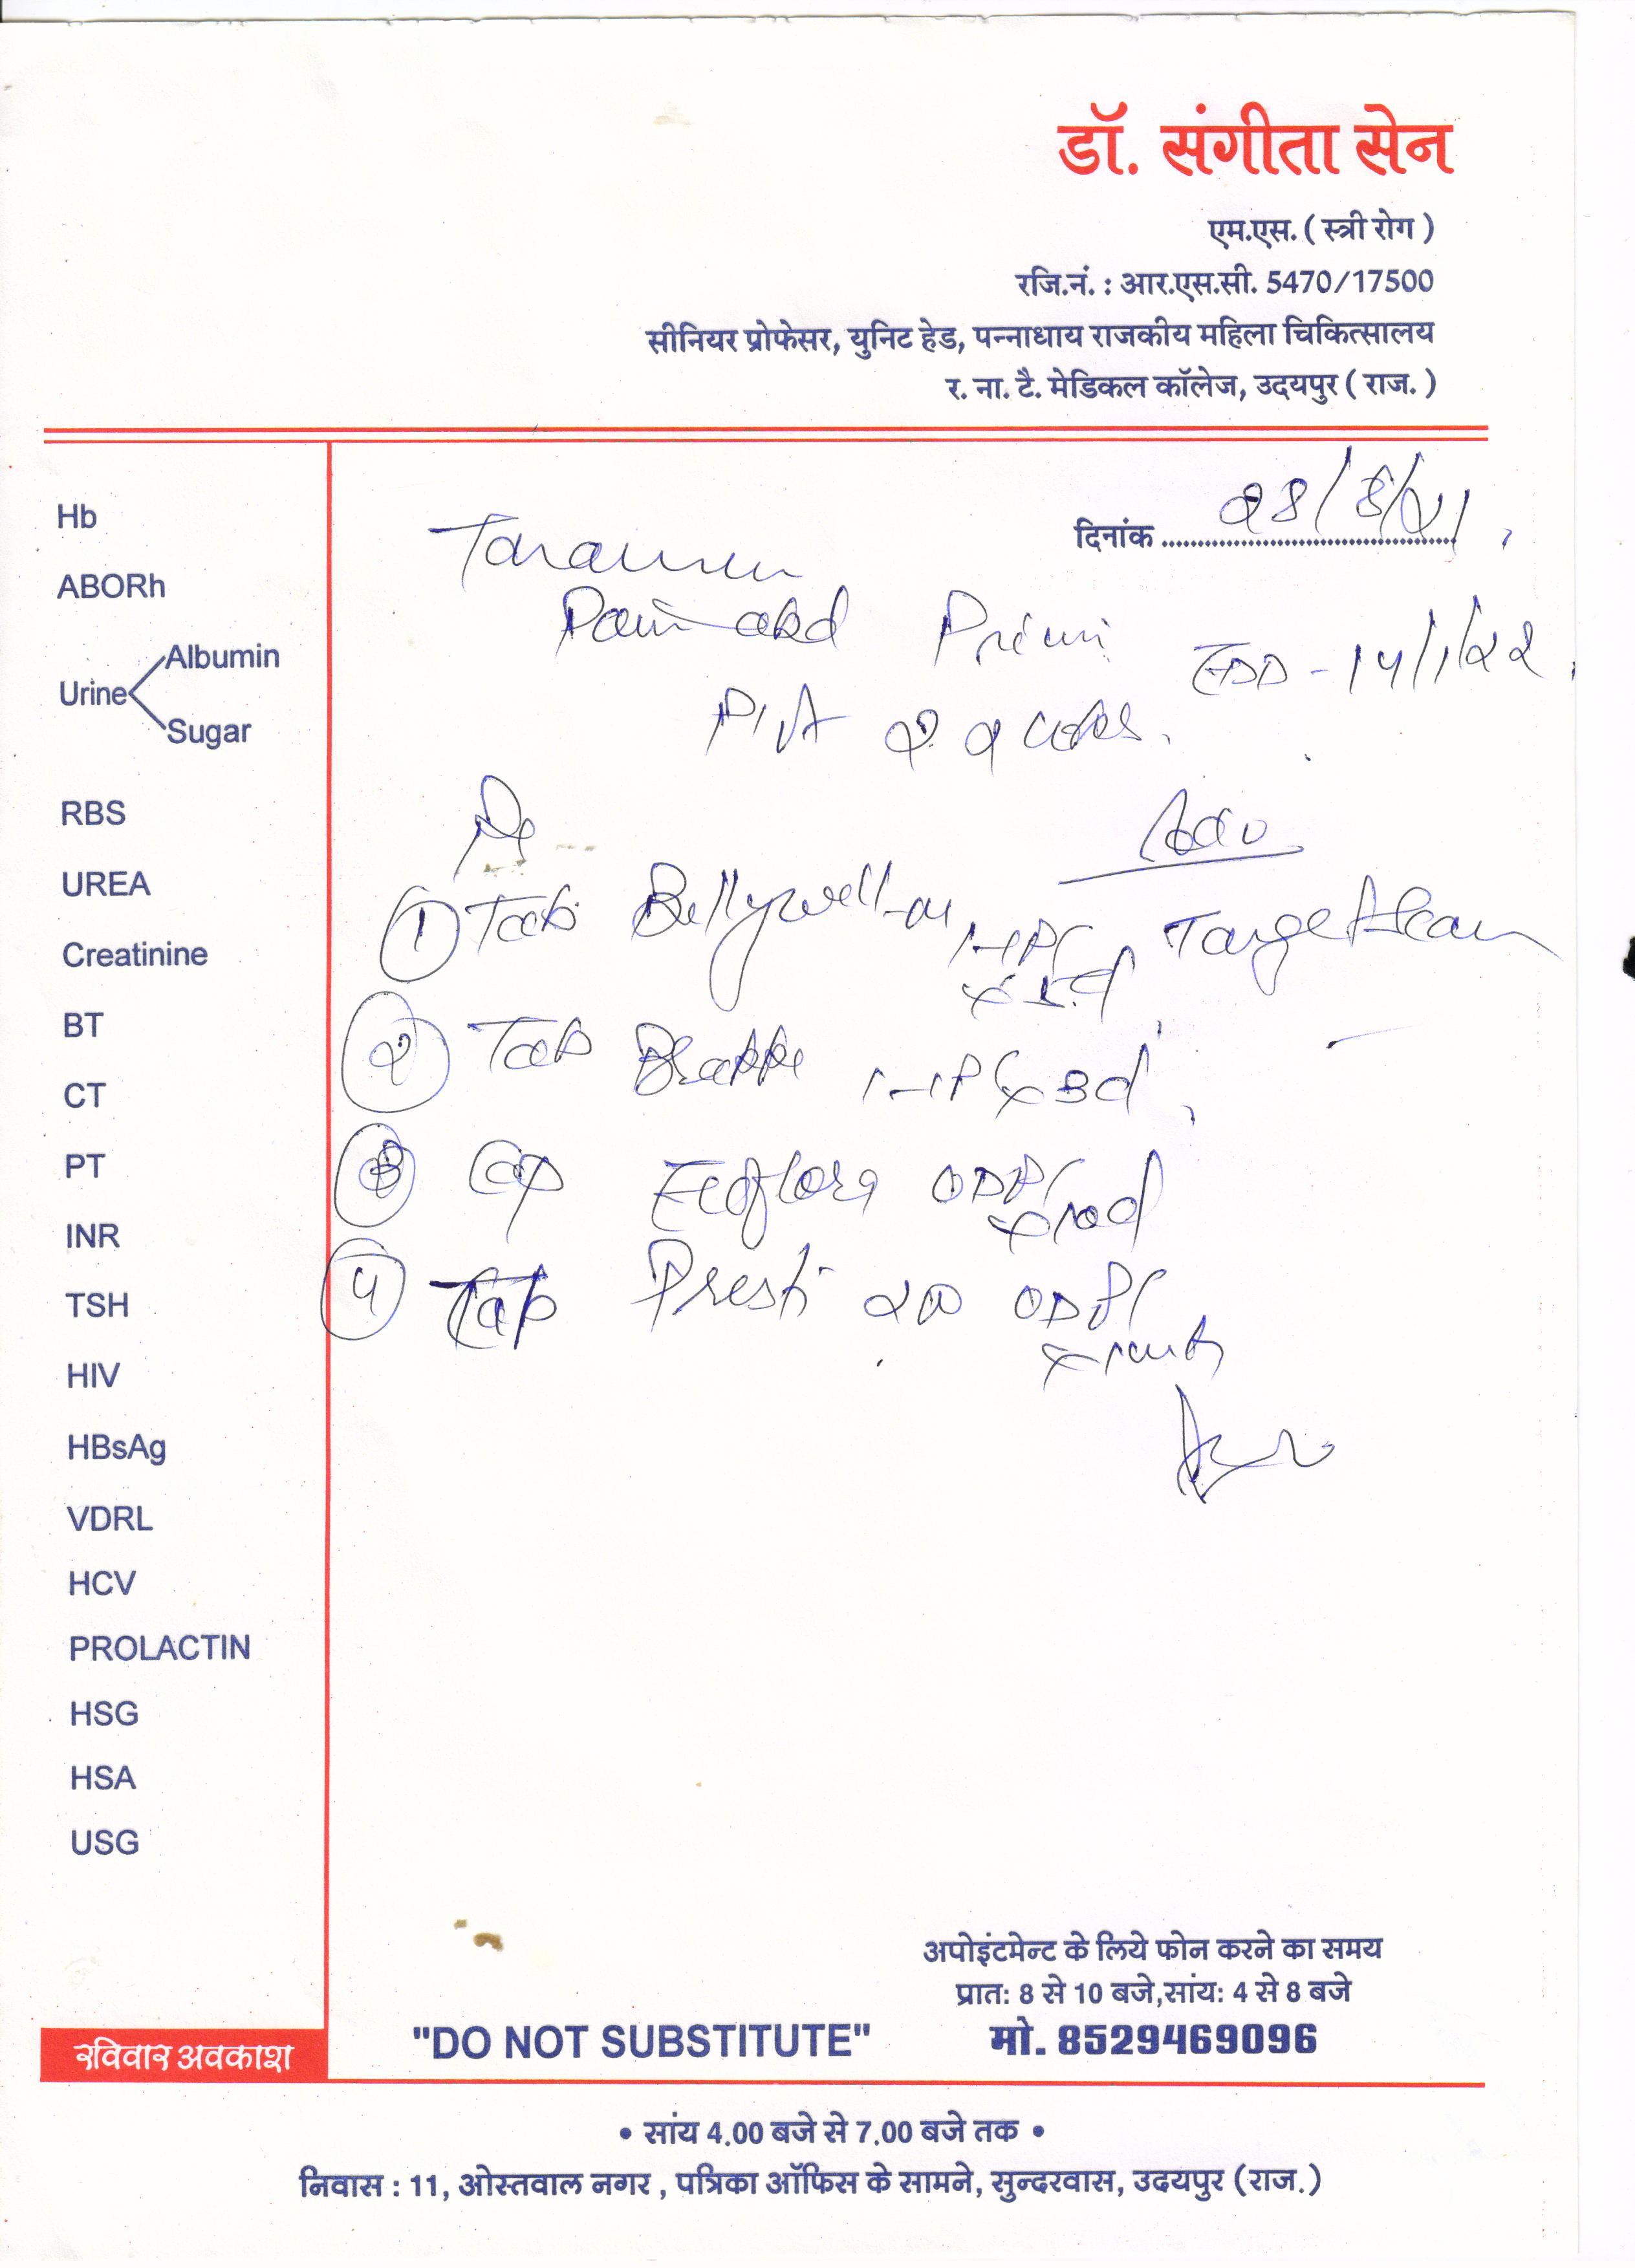 डॉ. संगीता सेन
एम.एस. ( स्त्री रोग )
रजि.नं. : आर.एस.सी. 5470/17500
सीनियर प्रोफेसर, युनिट हेड, पन्नाधाय राजकीय महिला चिकित्सालय
र. ना. टै. मेडिकल कॉलेज, उदयपुर ( राज. )
दिनांक 28/8/21
Pain abd Primi EDD - 14/1/22
Adv
① Tab Bellywell-M Target Scan
② Tab
③ Cap Ecoflora OD
④ Tab OD
Hb
ABORh
Urine Albumin
Sugar
RBS
UREA
Creatinine
BT
CT
PT
INR
TSH
HIV
HBsAg
VDRL
HCV
PROLACTIN
HSG
HSA
USG
रविवार अवकाश
"DO NOT SUBSTITUTE"
अपोइंटमेन्ट के लिये फोन करने का समय
प्रात: 8 से 10 बजे,सांय: 4 से 8 बजे
मो. 8529469096
• सांय 4.00 बजे से 7.00 बजे तक •
निवास : 11, ओस्तवाल नगर , पत्रिका ऑफिस के सामने, सुन्दरवास, उदयपुर (राज.)